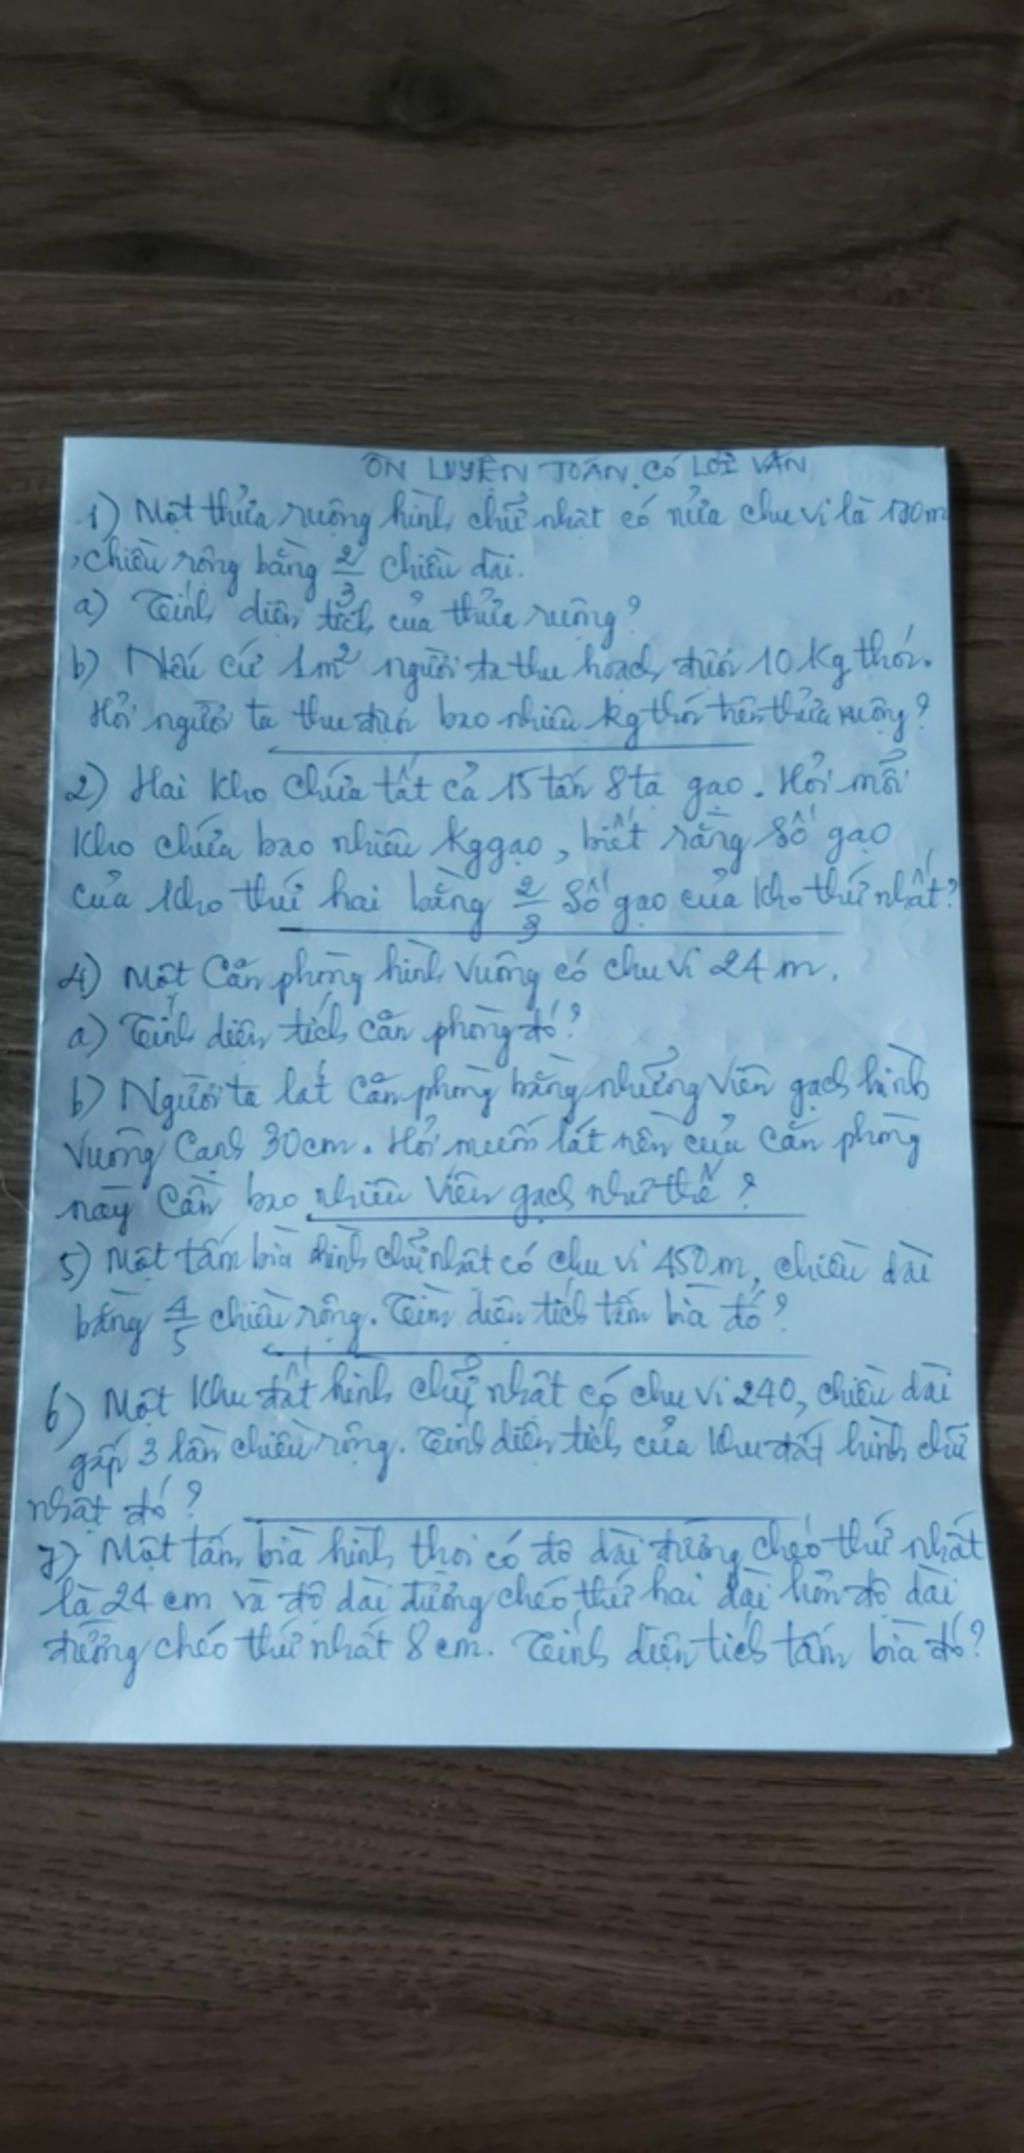 ÔN LUYỆN TOÁN CÓ LỜI VĂN
1) Một thửa ruộng hình chữ nhật có nửa chu vi là m
, chiều rộng bằng 2/3 chiều dài.
a) Tính diện tích của thửa ruộng?
b) Nếu cứ 1m² người ta thu hoạch được 10 Kg thóc.
Hỏi người ta thu được bao nhiêu kg thóc trên thửa ruộng?
2) Hai kho chứa tất cả 15 tấn 8 tạ gạo. Hỏi mỗi
kho chứa bao nhiêu kg gạo, biết rằng số gạo
của kho thứ hai bằng 2/3 số gạo của kho thứ nhất?
4) Một căn phòng hình vuông có chu vi 24 m.
a) Tính diện tích căn phòng đó?
b) Người ta lát căn phòng bằng những viên gạch hình
vuông cạnh 30cm. Hỏi muốn lát nền của căn phòng
này cần bao nhiêu viên gạch như thế?
5) Một tấm bìa hình chữ nhật có chu vi 450m, chiều dài
bằng 4/5 chiều rộng. Tìm diện tích tấm bìa đó?
6) Một khu đất hình chữ nhật có chu vi 240, chiều dài
gấp 3 lần chiều rộng. Tính diện tích của khu đất hình chữ
nhật đó?
7) Một tấm bìa hình thoi có độ dài đường chéo thứ nhất
là 24 cm và độ dài đường chéo thứ hai dài hơn độ dài
đường chéo thứ nhất 8 cm. Tính diện tích tấm bìa đó?